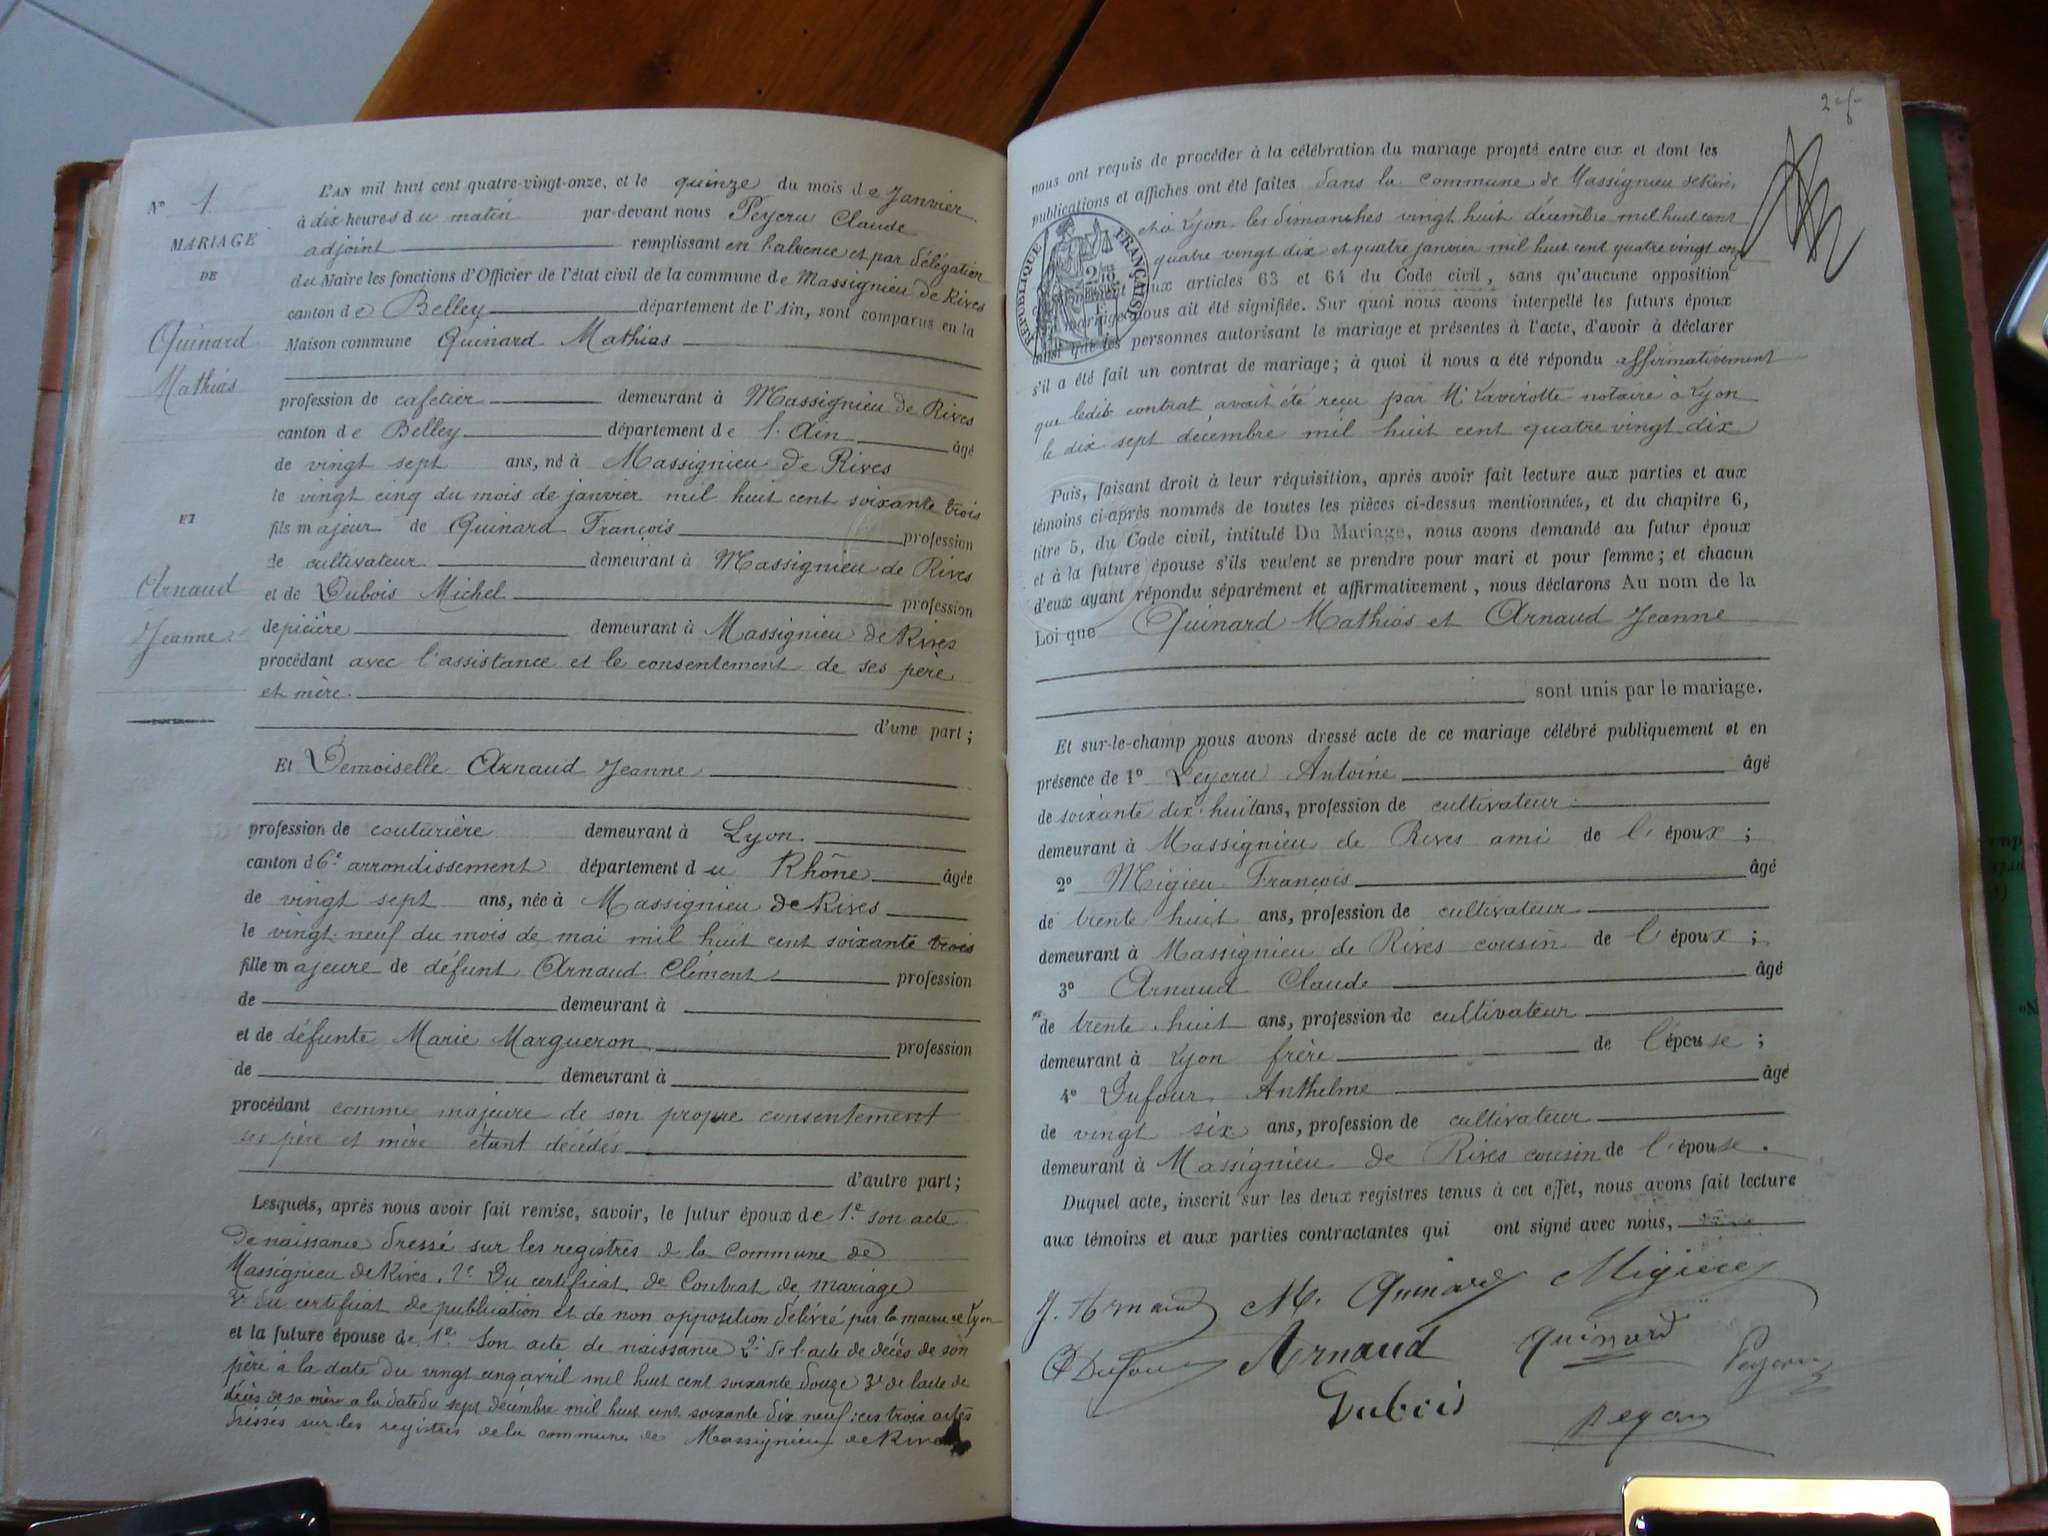 Nº 1
MARIAGE
DE
Quinard
Mathias
ET
Arnaud
Jeanne
L'AN mil huit cent quatre-vingt-onze, et le quinze du mois de Janvier
à dix heures du matin par-devant nous Peycru Claude
adjoint remplissant en l'absence et par délégation
du Maire les fonctions d'Officier de l'état civil de la commune de Massignieu de Rives
canton de Belley département de l'Ain, sont comparus en la
Maison commune Quinard Mathias
profession de cafetier demeurant à Massignieu de Rives
canton de Belley département de l'Ain âgé
de vingt sept ans, né à Massignieu de Rives
le vingt cinq du mois de janvier mil huit cent soixante trois
fils majeur de Quinard François profession
de cultivateur demeurant à Massignieu de Rives
et de Dubois Michel profession
d'epicière demeurant à Massignieu de Rives
procédant avec l'assistance et le consentement de ses père
et mère.
d'une part ;
Et Demoiselle Arnaud Jeanne
profession de couturière demeurant à Lyon
canton d 6e arrondissement département du Rhône âgée
de vingt sept ans, née à Massignieu de Rives
le vingt neuf du mois de mai mil huit cent soixante trois
fille majeure de défunt Arnaud Clément profession
de demeurant à
et de défunte Marie Margueron profession
de demeurant à
procédant comme majeure de son propre consentement
ses père et mère étant décédés
d'autre part ;
Lesquels, après nous avoir fait remise, savoir, le futur époux de 1e son acte
de naissance dressé sur les registres de la commune de
Massignieu de Rives. 2e Du certificat de Contrat de mariage
3e du certificat de publication et de non opposition délivré par la mairie de Lyon
et la future épouse de 1e Son acte de naissance 2e de l'acte de décès de son
père à la date du vingt cinq avril mil huit cent soixante douze 3e de l'acte de
décès de sa mère a la date du sept décembre mil huit cent soixante dix neuf ; ces trois actes
dressés sur les registres de la commune de Massignieu de Rives
2
nous ont requis de procéder à la célébration du mariage projeté entre eux et dont les
publications et affiches ont été faites dans la commune de Massignieu de Rives
et à Lyon les dimanches vingt huit décembre mil huit cent
quatre vingt dix et quatre janvier mil huit cent quatre vingt onze
RÉPUBLIQUE FRANÇAISE
aux articles 63 et 64 du Code civil, sans qu'aucune opposition
mariage nous ait été signifiée. Sur quoi nous avons interpellé les futurs époux
ainsi que les personnes autorisant le mariage et présentes à l'acte, d'avoir à déclarer
s'il a été fait un contrat de mariage ; à quoi il nous a été répondu affirmativement
que ledit contrat avait été reçu par Me Lavirotte notaire à Lyon
le dix sept décembre mil huit cent quatre vingt dix
Puis, faisant droit à leur réquisition, après avoir fait lecture aux parties et aux
témoins ci-après nommés de toutes les pièces ci-dessus mentionnées, et du chapitre 6,
titre 5, du Code civil, intitulé Du Mariage, nous avons demandé au futur époux
et à la future épouse s'ils veulent se prendre pour mari et pour femme ; et chacun
d'eux ayant répondu séparément et affirmativement, nous déclarons Au nom de la
Loi que Quinard Mathias et Arnaud Jeanne
sont unis par le mariage.
Et sur-le-champ nous avons dressé acte de ce mariage célébré publiquement et en
présence de 1º Peycru Antoine âgé
de soixante dix-huit ans, profession de cultivateur
demeurant à Massignieu de Rives ami de l'époux ;
2º Migieu François âgé
de trente huit ans, profession de cultivateur
demeurant à Massignieu de Rives cousin de l'époux ;
3º Arnaud Claude âgé
de trente huit ans, profession de cultivateur
demeurant à Lyon frère de l'épouse ;
4º Dufour Anthelme âgé
de vingt six ans, profession de cultivateur
demeurant à Massignieu de Rives cousin de l'épouse.
Duquel acte, inscrit sur les deux registres tenus à cet effet, nous avons fait lecture
aux témoins et aux parties contractantes qui ont signé avec nous,
J. Arnaud M. Quinard Migieu
Dufour Arnaud Quinard Peycru
Dubois Peycru